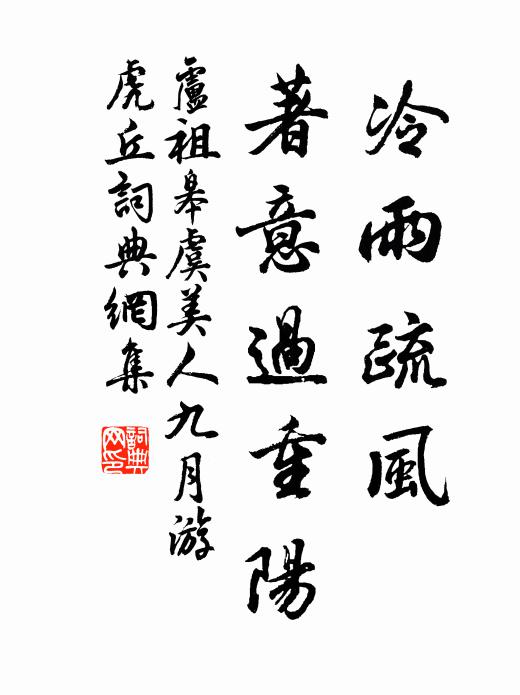 冷雨疏風
著意過重陽
盧祖皋虞美人九月游
虎丘詞典網集
詞典
网印